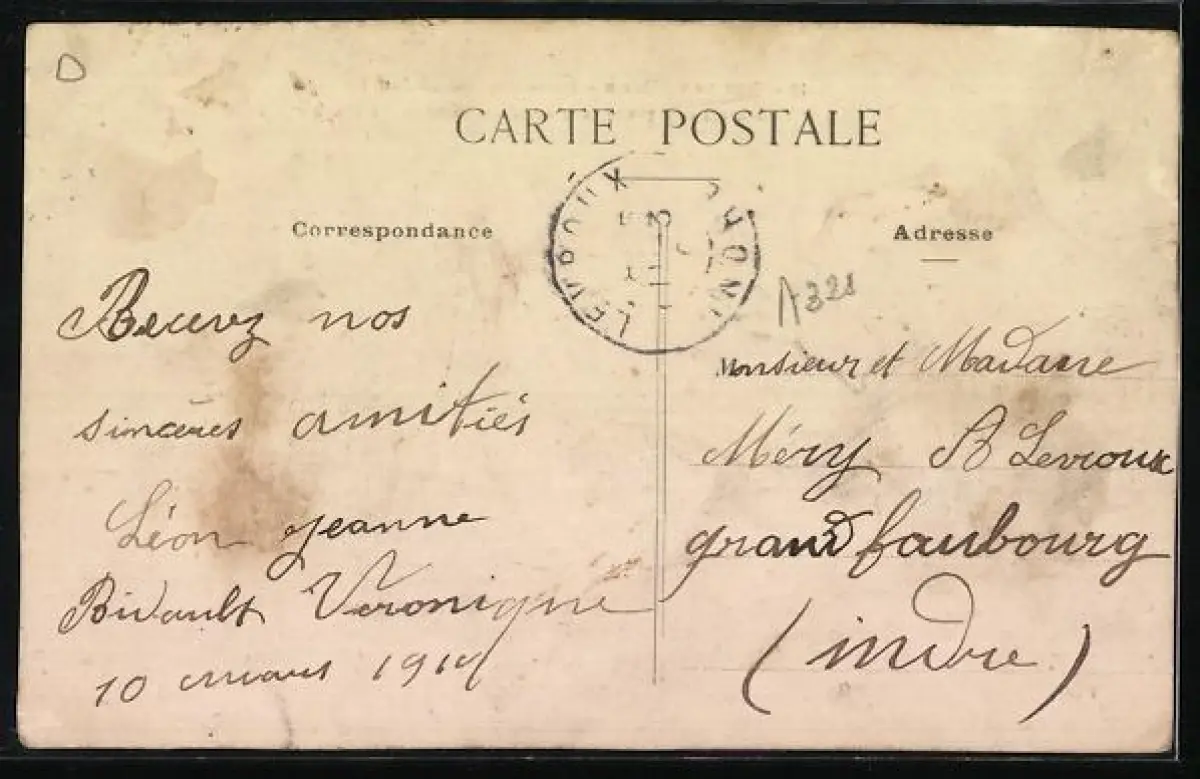 D
CARTE POSTALE
LEVROUX
Correspondance
Adresse
A321
Recevez nos
sincères amitiés
Léon Jeanne
Bidault Véronique
10 mars
Monsieur et Madame
Méry A Levroux
grand faubourg
(indre)